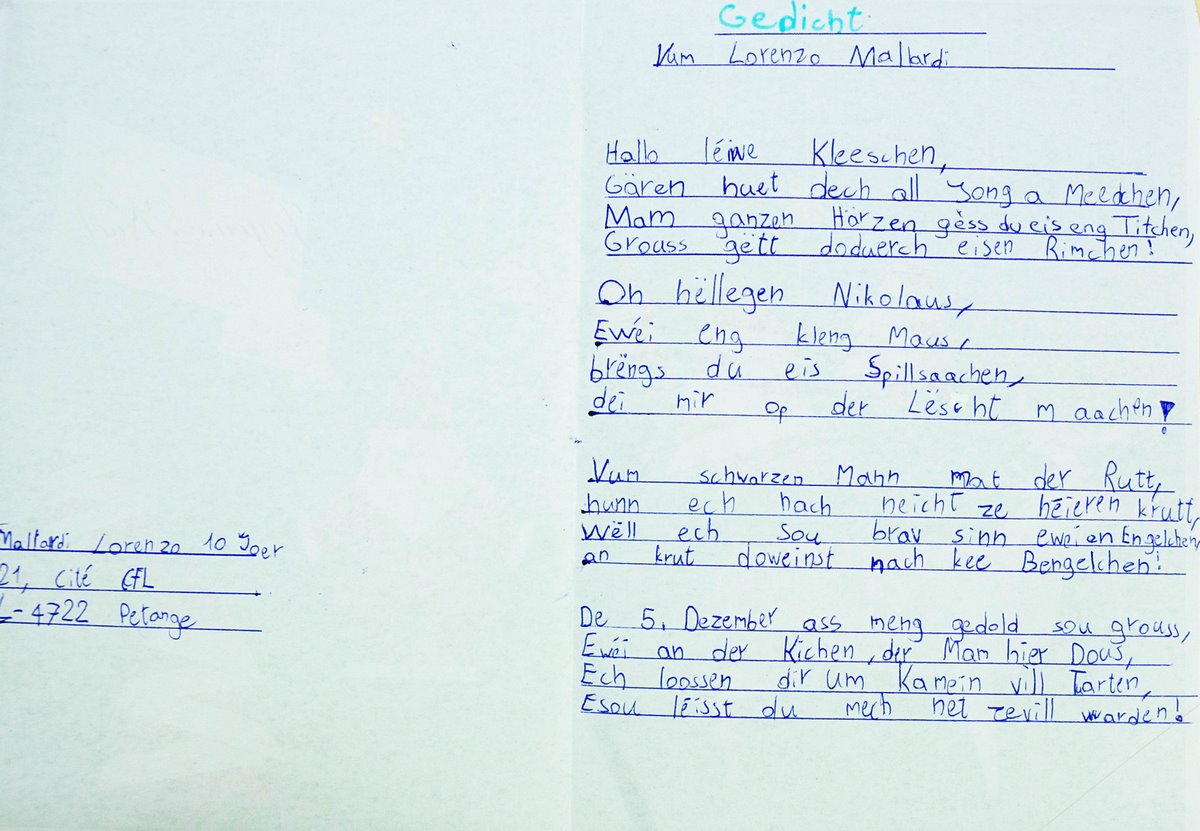 Gedicht
Vum Lorenzo Mallardi
Hallo léiwe Kleeschen,
Gären huet dech all Jong a Meedchen,
Mam ganzen Härzen gëss du eis eng Titchen,
Grouss gëtt doduerch eisen Rimchen!
Oh hëllegen Nikolaus,
Ewéi eng kleng Maus,
brëngs du eis Spillsaachen,
déi mir op der Lëscht maachen!
Vum schwarzen Mann mat der Rutt,
hunn ech nach neicht ze héieren krutt,
Wëll ech sou brav sinn ewei en Engelchen
an krut doweinst nach kee Bengelchen!
De 5. Dezember ass meng gedold sou grouss,
Ewéi an der Kichen, der Mam hier Dous,
Ech loossen dir um Kamein vill Tarten,
Esou léisst du mech net zevill warden!
Mallardi Lorenzo 10 Joer
21, Cité CFL
L-4722 Petange